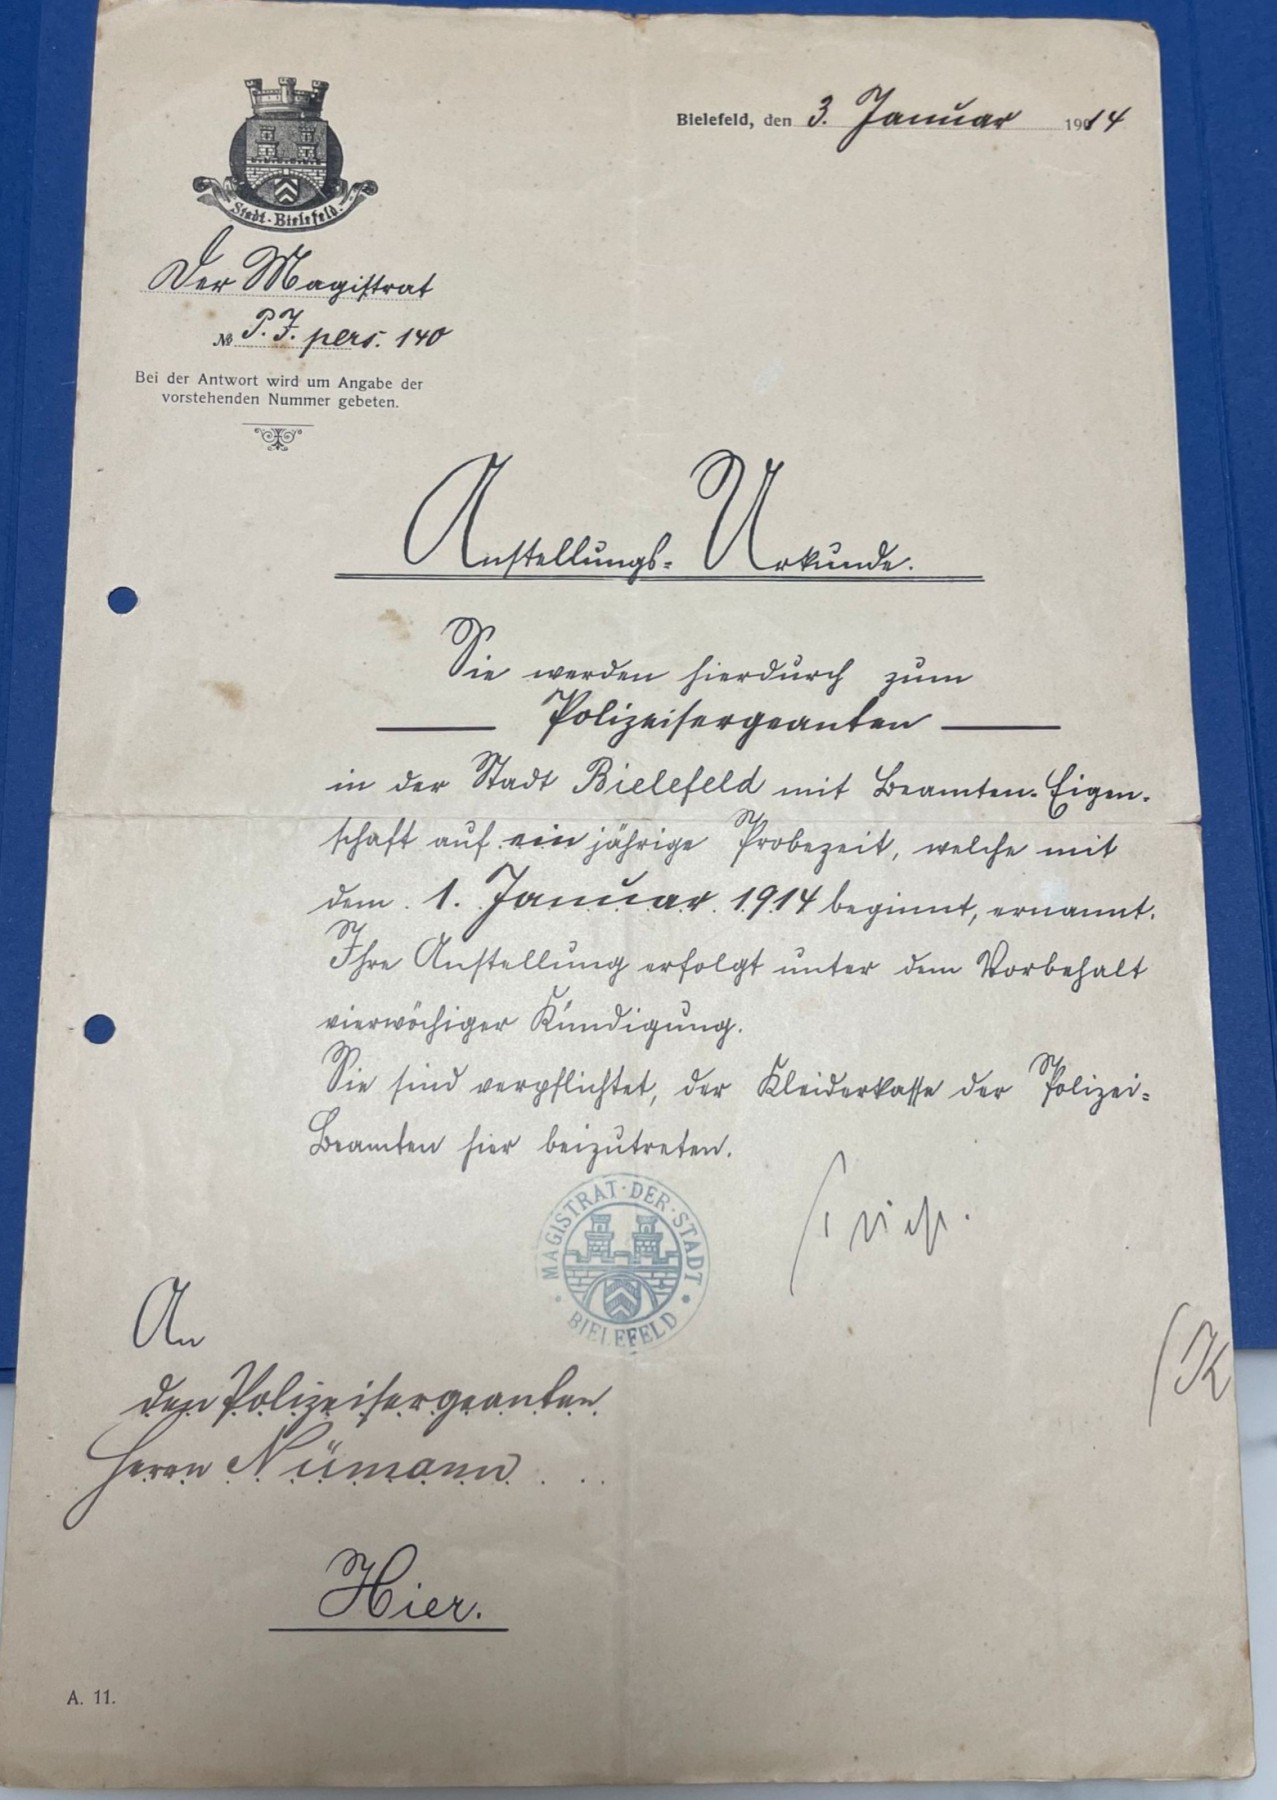 Stadt-Bielefeld.
Bielefeld, den 3. Januar 1914
Der Magistrat
№ P. J. pers. 140
Bei der Antwort wird um Angabe der
vorstehenden Nummer gebeten.
Anstellungs-Urkunde.
Sie werden hierdurch zum
Polizeisergeanten
in der Stadt Bielefeld mit Beamten-Eigen-
schaft auf einjährige Probezeit, welche mit
dem 1. Januar 1914 beginnt, ernannt.
Ihre Anstellung erfolgt unter dem Vorbehalt
vierwöchiger Kündigung.
Sie sind verpflichtet, der Kleiderkasse der Polizei-
Beamten hier beizutreten.
MAGISTRAT · DER · STADT · BIELEFELD ·
An
den Polizeisergeanten
Herrn Nümann
Hier.
A. 11.